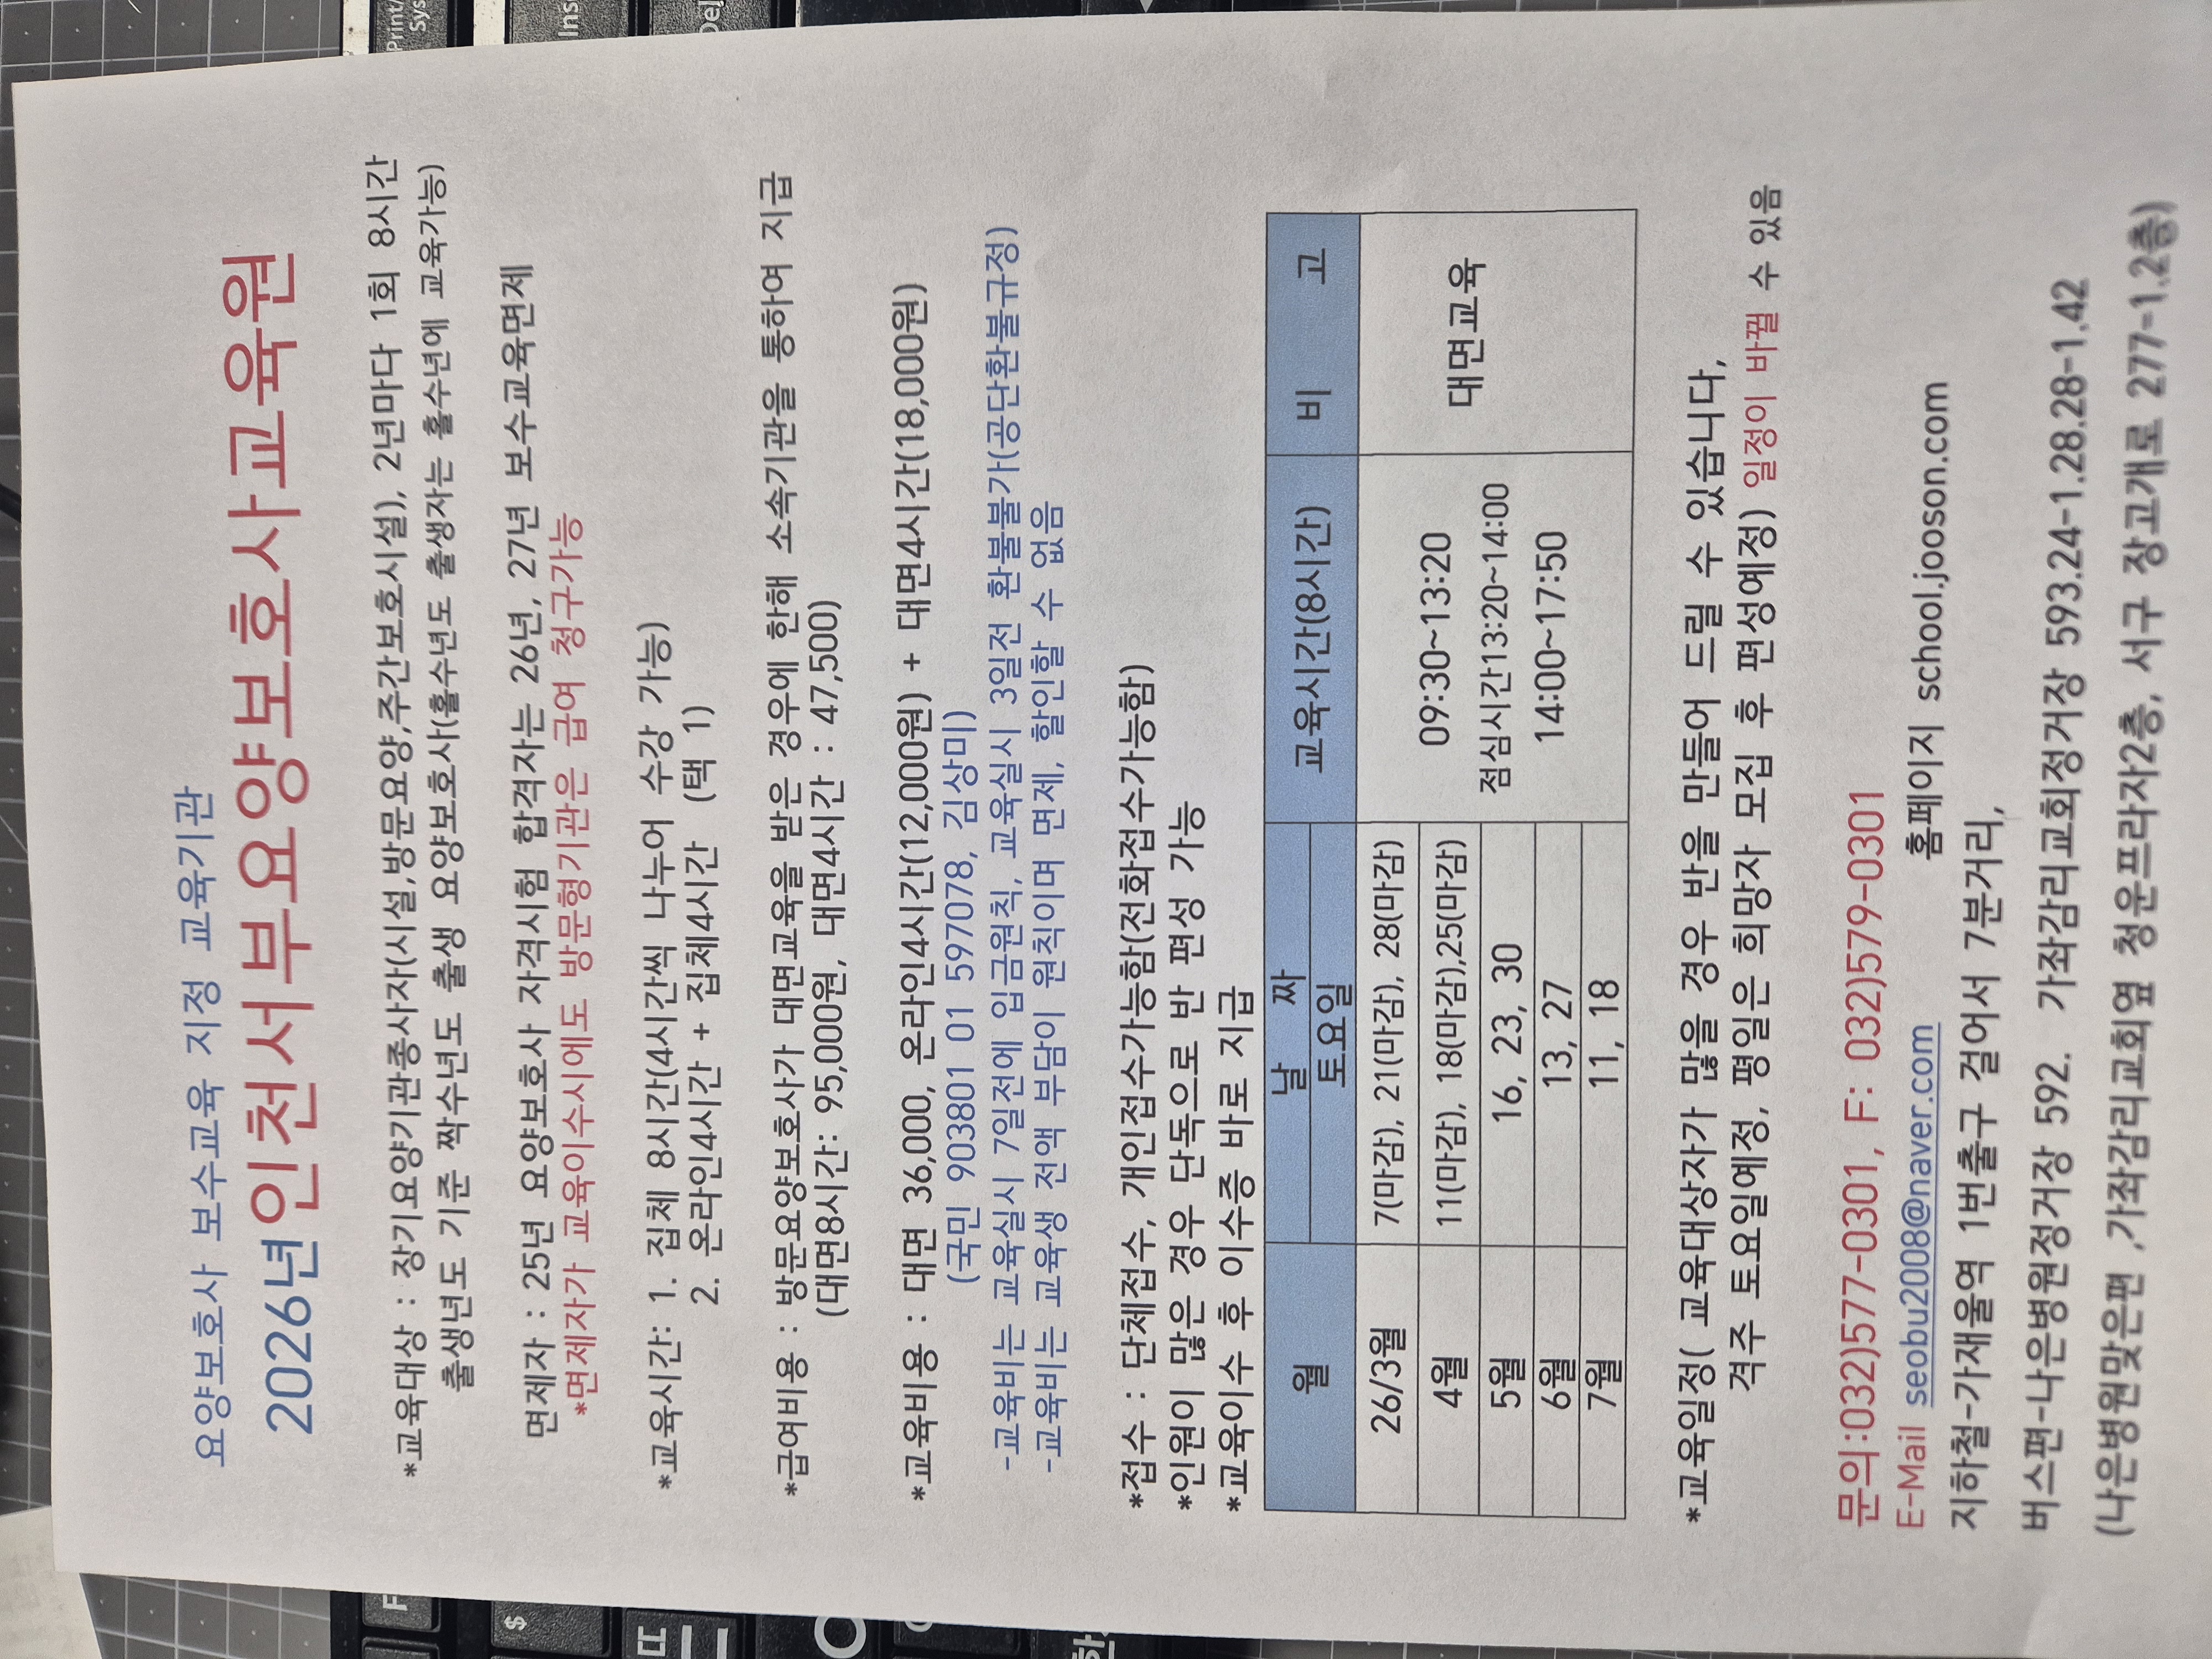 요양보호사 보수교육 지정 교육기관
2026년인천서부요양보호사교육원
*교육대상 : 장기요양기관종사자(시설,방문요양,주간보호시설), 2년마다 1회 8시간
출생년도 기준 짝수년도 출생 요양보호사(홀수년도 출생자는 홀수년에 교육가능)
면제자 : 25년 요양보호사 자격시험 합격자는 26년, 27년 보수교육면제
*면제자가 교육이수시에도 방문형기관은 급여 청구가능
*교육시간: 1. 집체 8시간(4시간씩 나누어 수강 가능)
2. 온라인4시간 + 집체4시간 (택 1)
*급여비용 : 방문요양보호사가 대면교육을 받은 경우에 한해 소속기관을 통하여 지급
(대면8시간: 95,000원, 대면4시간 : 47,500)
*교육비용 : 대면 36,000, 온라인4시간(12,000원) + 대면4시간(18,000원)
(국민 903801 01 597078, 김상미)
-교육비는 교육실시 7일전에 입금원칙, 교육실시 3일전 환불불가(공단환불규정)
-교육비는 교육생 전액 부담이 원칙이며 면제, 할인할 수 없음
*접수 : 단체접수, 개인접수가능함(전화접수가능함)
*인원이 많은 경우 단독으로 반 편성 가능
*교육이수 후 이수증 바로 지급
월 날 짜 교육시간(8시간) 비 고
토요일
26/3월 7(마감), 21(마감), 28(마감)
4월 11(마감), 18(마감),25(마감) 09:30~13:20 대면교육
5월 16, 23, 30 점심시간13:20~14:00
6월 13, 27 14:00~17:50
7월 11, 18
*교육일정( 교육대상자가 많을 경우 반을 만들어 드릴 수 있습니다,
격주 토요일예정, 평일은 희망자 모집 후 편성예정) 일정이 바뀔 수 있음
문의:032)577-0301, F: 032)579-0301
E-Mail seobu2008@naver.com 홈페이지 school.jooson.com
지하철-가재울역 1번출구 걸어서 7분거리,
버스편-나은병원정거장 592. 가좌감리교회정거장 593.24-1.28.28-1.42
(나은병원맞은편 ,가좌감리교회옆 청운프라자2층, 서구 장고개로 277-1.2층)